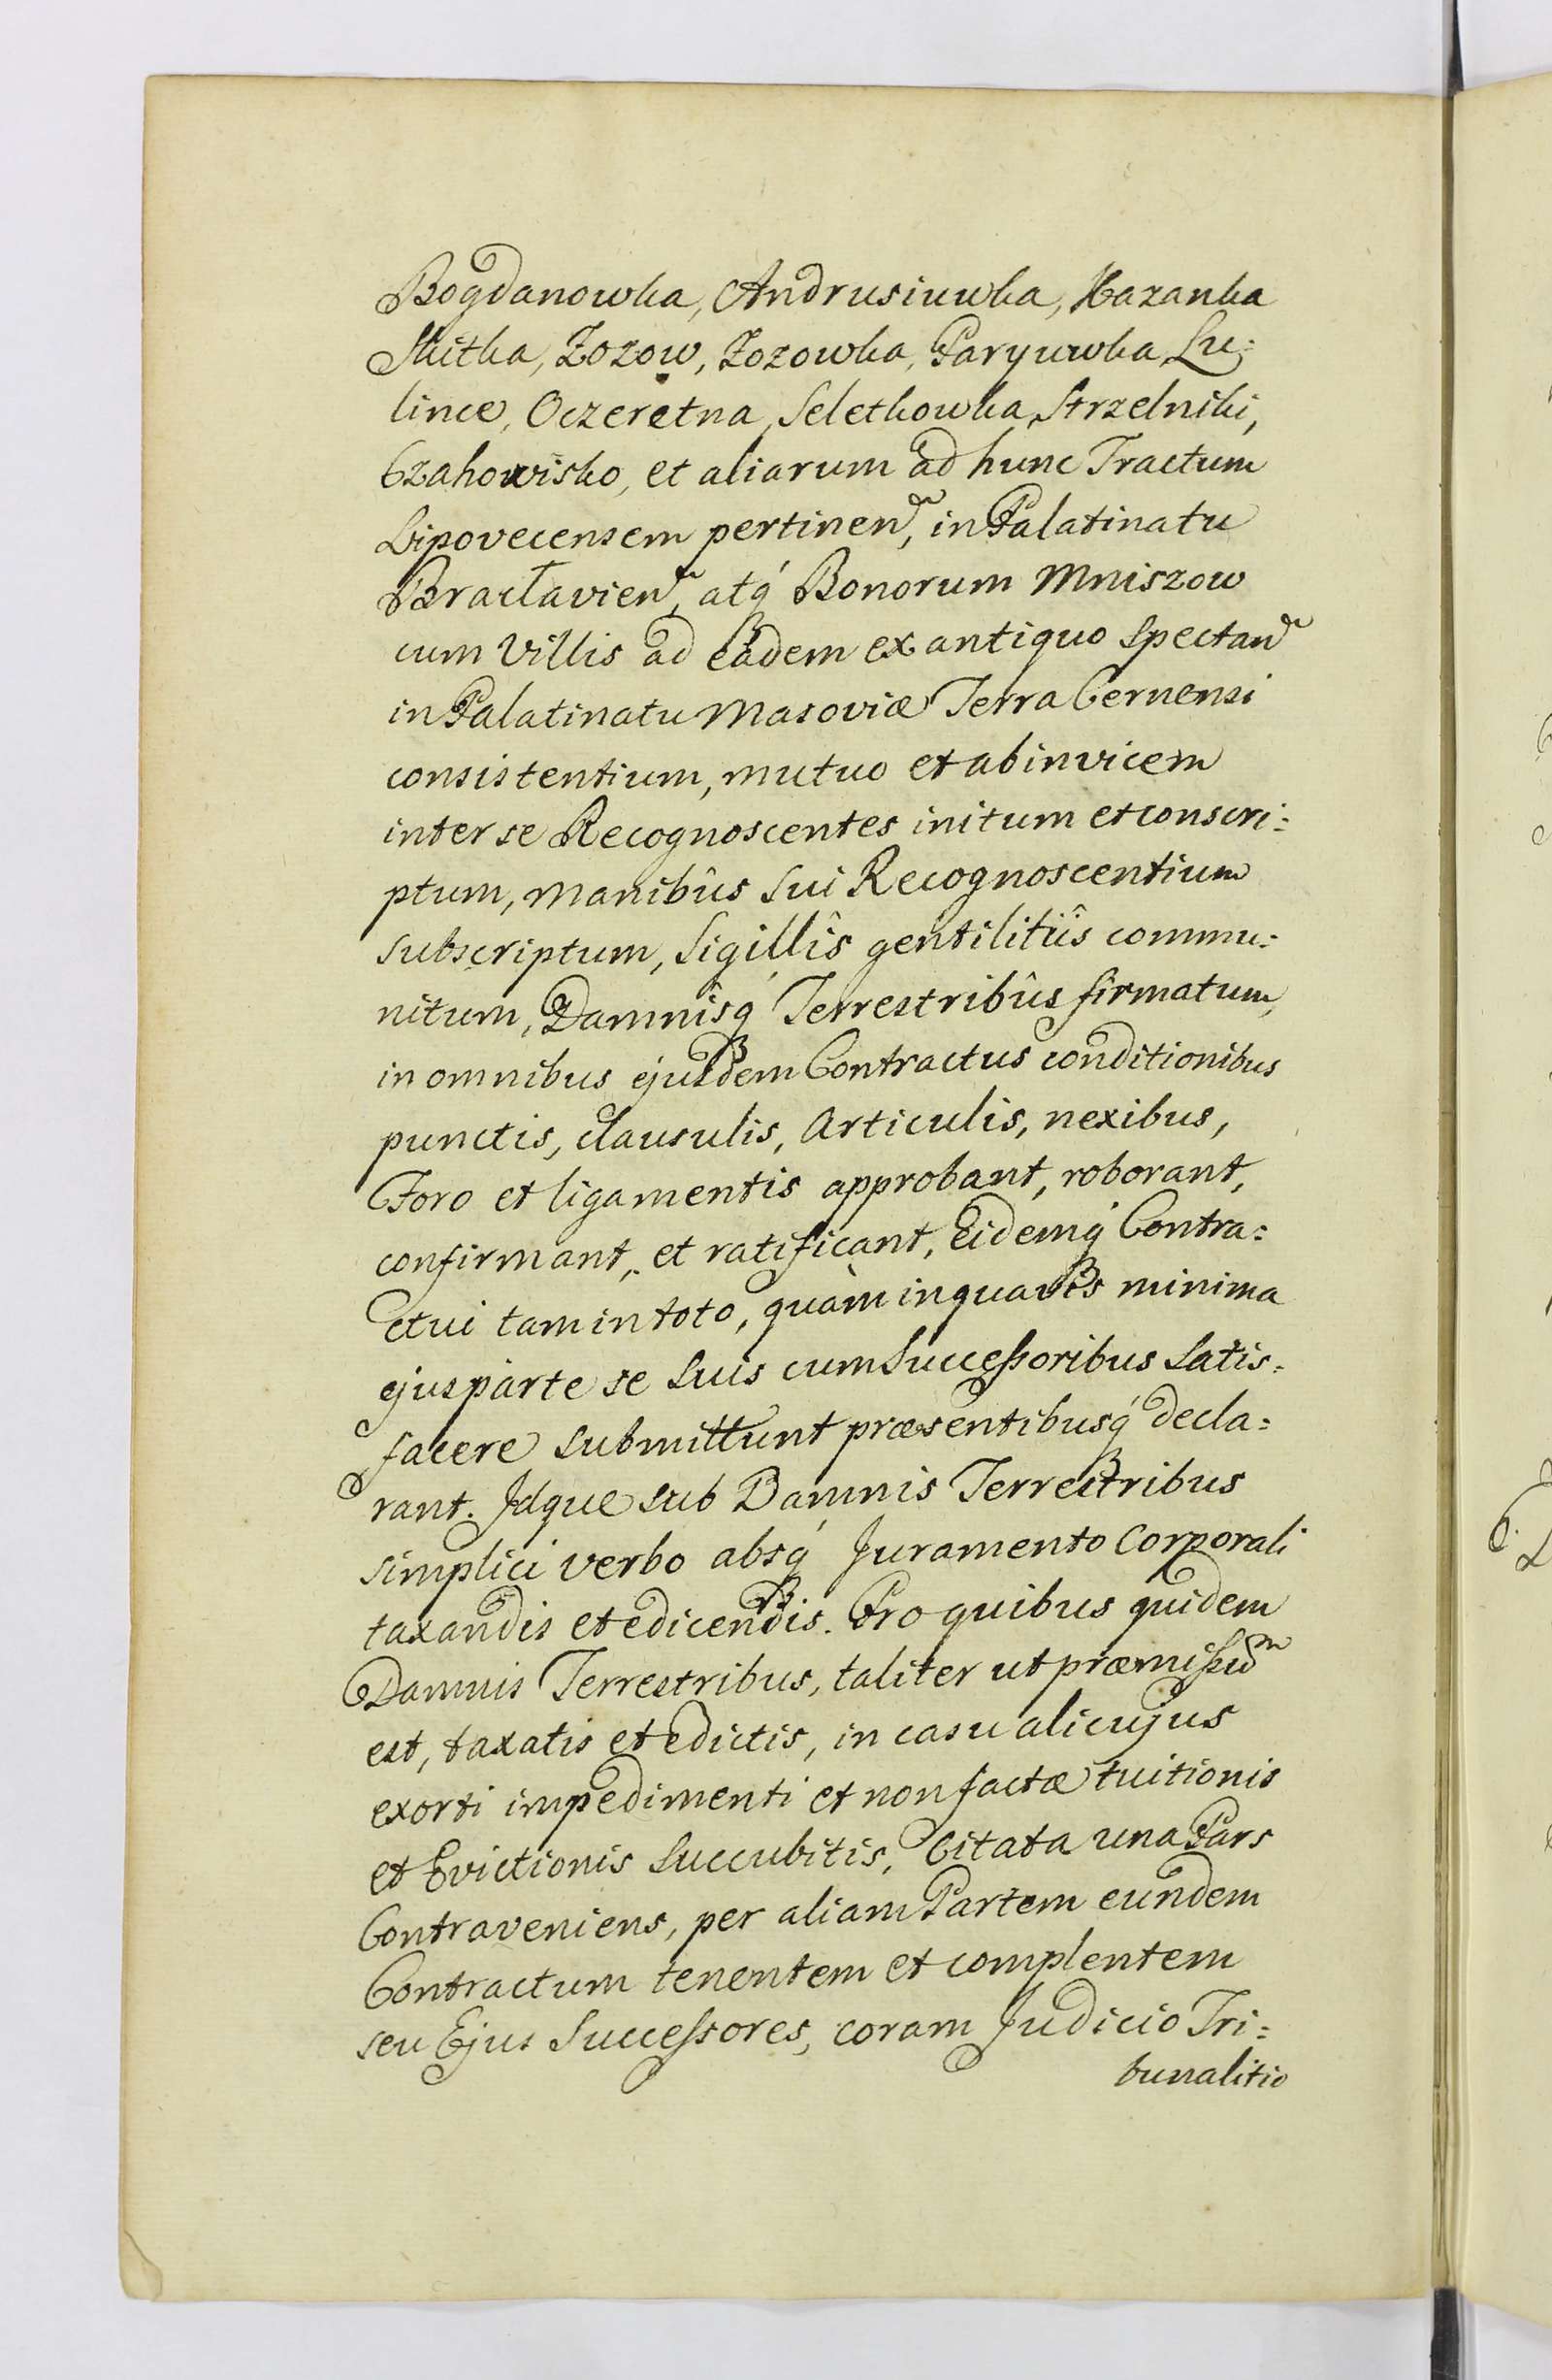 Bogdanowka, Andrusiuwka, Kazanka
Skitka, Zozow, Zozowka, Paryuwka, Lu=
lince, Oczeretna, Seletkowka, Strzelniki,
Czahowisko, et aliarum ad hunc Tractum
Lipovecensem pertinen, in Palatinatu
Bracłavien, atq́ Bonorum Mniszow
cum Villis ad eadem ex antiquo spectan
in Palatinatu Masoviæ Terra Cernensi
consistentium, mutuo et ab invicem
inter se Recognoscentes initum et conscri=
ptum, manibûs sui Recognoscentium
subscriptum, Sigillîs gentilitiîs commu=
nitum, Damnîsq́ Terrestribûs firmatum,
in omnibus ejusdem Contractus conditionibus
punctis, clausulis, Articulis, nexibus,
Foro et ligamentis approbant, roborant,
confirmant, et ratificant, Eidemq́ Contra=
ctui tam in toto, quàm in quavis minima
ejus parte se suis cum Successoribus Satis=
facere submittunt præsentibusq́ decla=
rant. Idque sub Damnis Terrestribus
simplici verbo absq́ Juramento Corporali
taxandis et edicendis. Pro quibus quidem
Damnis Terrestribus, taliter ut præmissu͠m
est, taxatis et edictis, in casu alicujus
exorti impedimenti et non factæ tuitionis
et Evictionis Succubitis, Citata una Pars
Contraveniens, per aliam Partem eundem
Contractum tenentem et complentem
seu Ejus Successores, coram Judicio Tri=
bunalitio